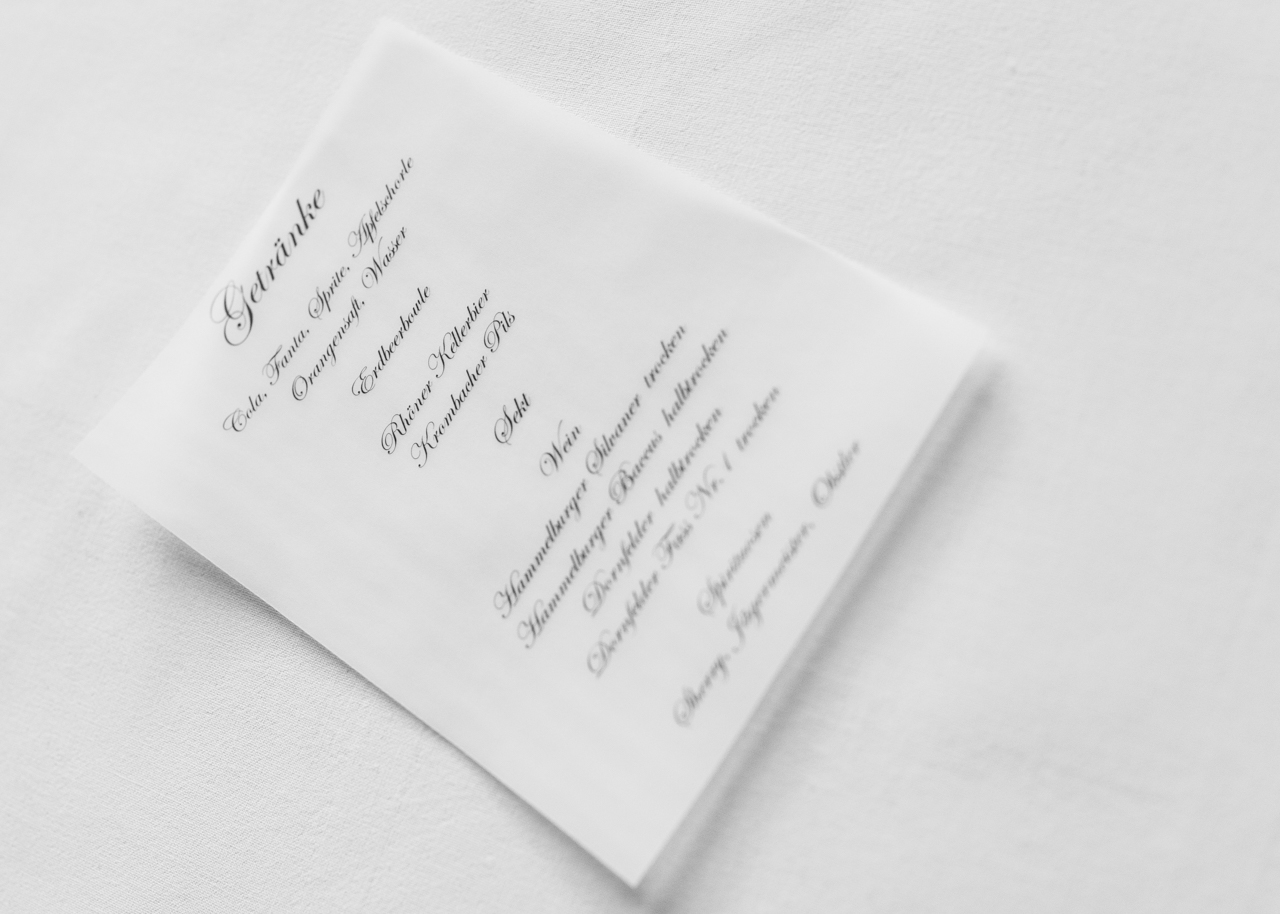 Getränke
Cola, Fanta, Sprite, Apfelschorle
Orangensaft, Wasser
Erdbeerbowle
Rhöner Kellerbier
Krombacher Pils
Sekt
Wein
Hammelburger Silvaner trocken
Hammelburger Baccus halbtrocken
Dornfelder halbtrocken
Dornfelder Fass Nr. 1 trocken
Spirituosen
Sherry, Jägermeister, Obstler